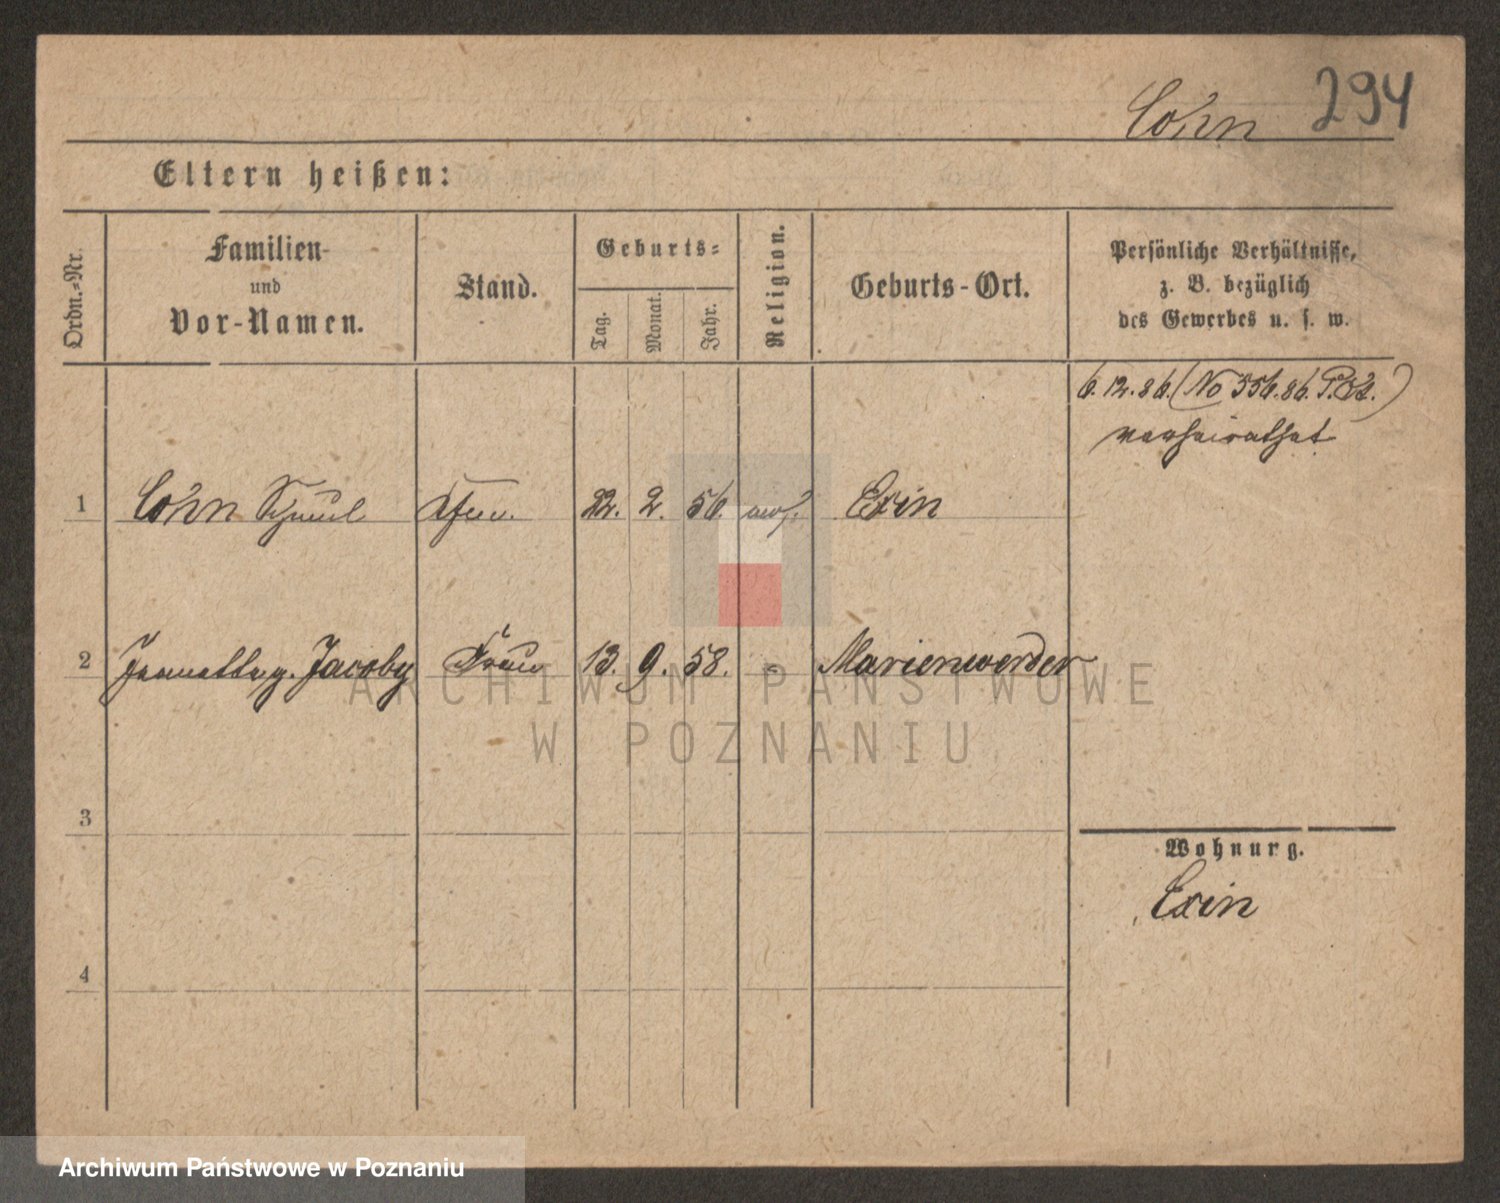 Cohn 294
Eltern heißen:
Ordn.-Nr.
Familien-
und
Vor-Namen.
Stand.
Geburts-
Tag.
Monat.
Jahr.
Religion.
Geburts-Ort.
Persönliche Verhältnisse,
z. B. bezüglich
des Gewerbes u. s. w.
6.12.86. (No 356.86. P.
verheirathet
1 Cohn 22. 2. 56. mos. Exin
2 Jeannette g. Jacoby Frau 13. 9. 58. " Marienwerder
3
Wohnung.
Exin
4
ARCHIWUM PAŃSTWOWE
W POZNANIU
Archiwum Państwowe w Poznaniu